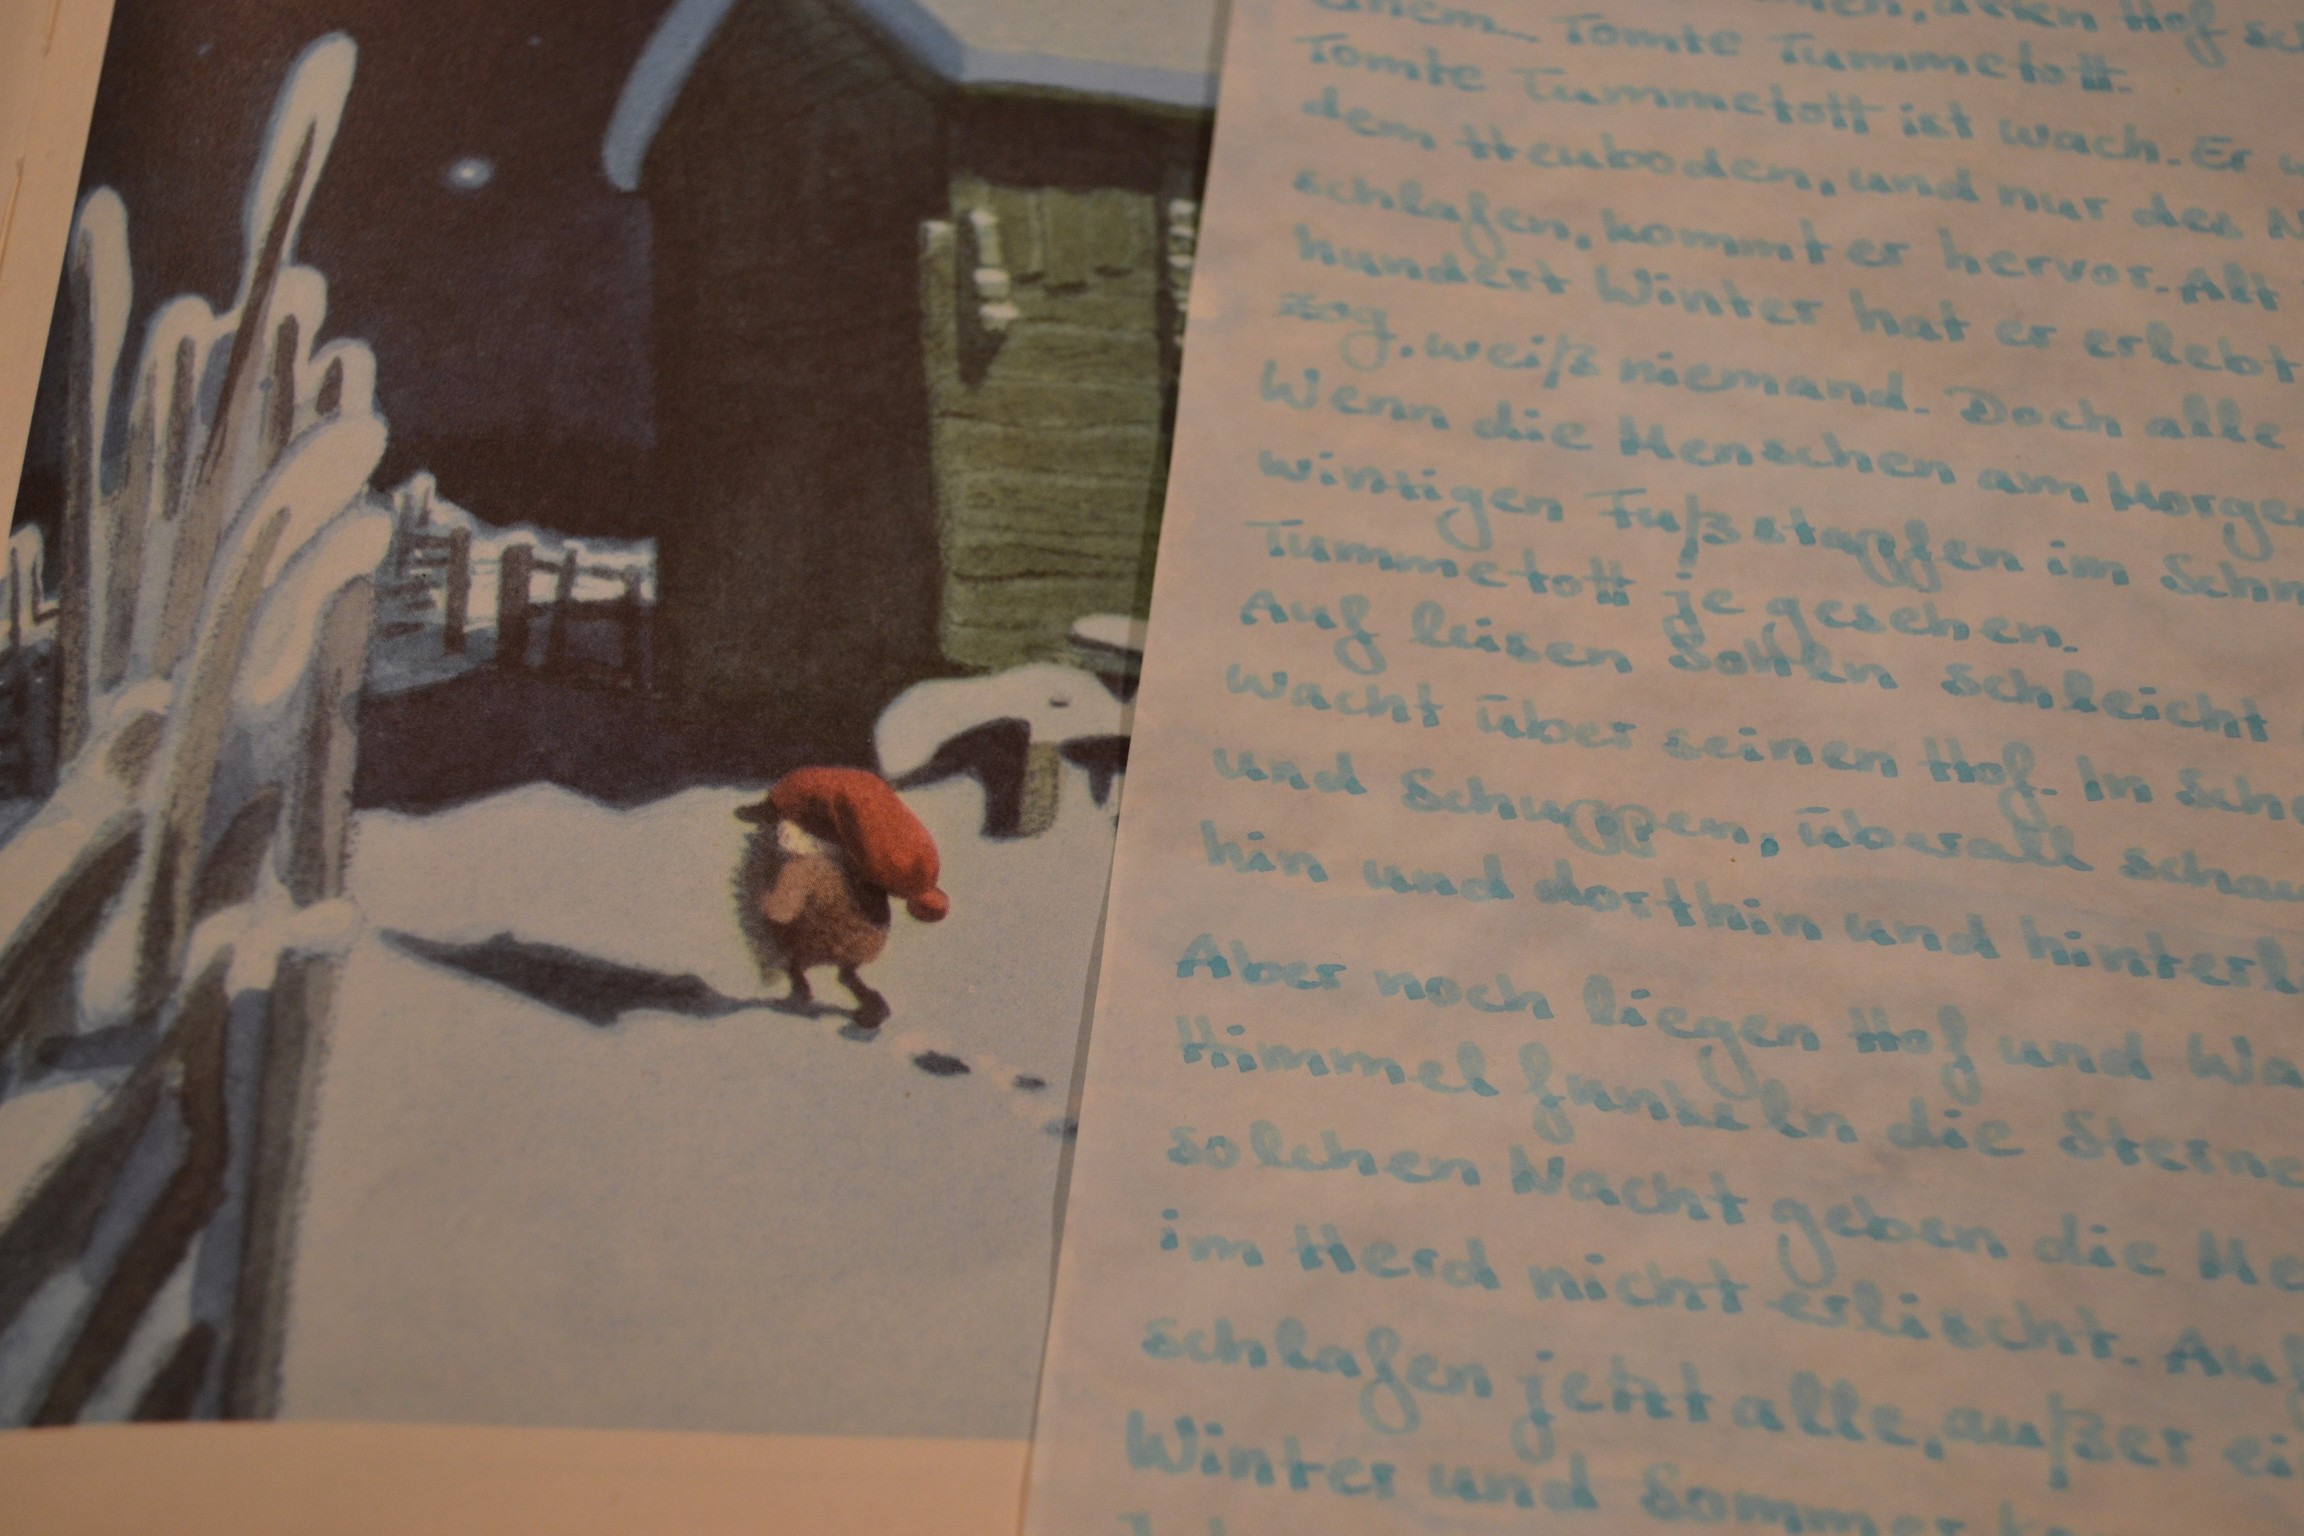 einem Tomte Tummetott.
Tomte Tummetott ist wach. Er
dem Heuboden, und nur des
schlafen, kommt er hervor. Alt
hundert Winter hat er erlebt
zog, weiß niemand. Doch alle
Wenn die Menschen am Morge
winzigen Fußstapfen im Schn
Tummetott je gesehen.
Auf leisen Sohlen schleicht
wacht über seinen Hof. In Sch
und Schuppen, überall schau
hin und dorthin und hinterl
Aber noch liegen Hof und Wa
Himmel funkeln die Sterne
solchen Nacht geben die Me
im Herd nicht erlischt. Auf
schlafen jetzt alle, außer ei
Winter und Sommer